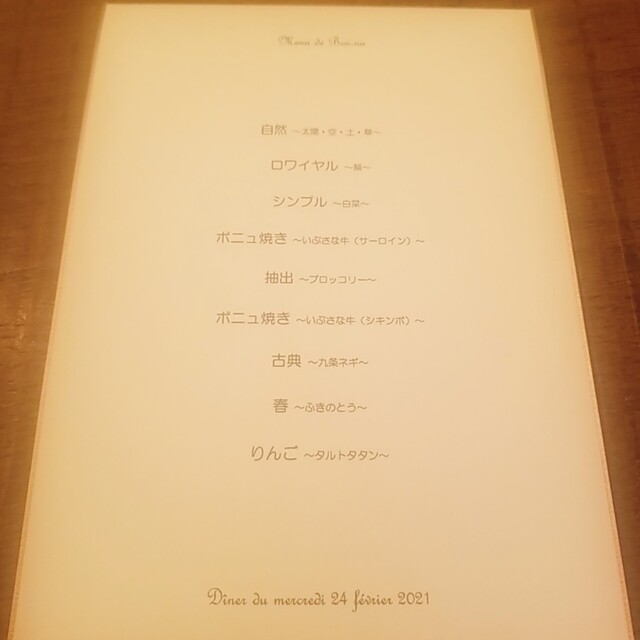 Menu de Bon.nu
自然 ～太陽・空・土・草～
ロワイヤル
シンプル ～白菜～
ボニュ焼き ～いぶさな牛（サーロイン）～
抽出 ～ブロッコリー～
ボニュ焼き ～いぶさな牛（シキンボ）～
古典 ～九条ネギ～
春 ～ふきのとう～
りんご ～タルトタタン～
Dîner du mercredi 24 février 2021